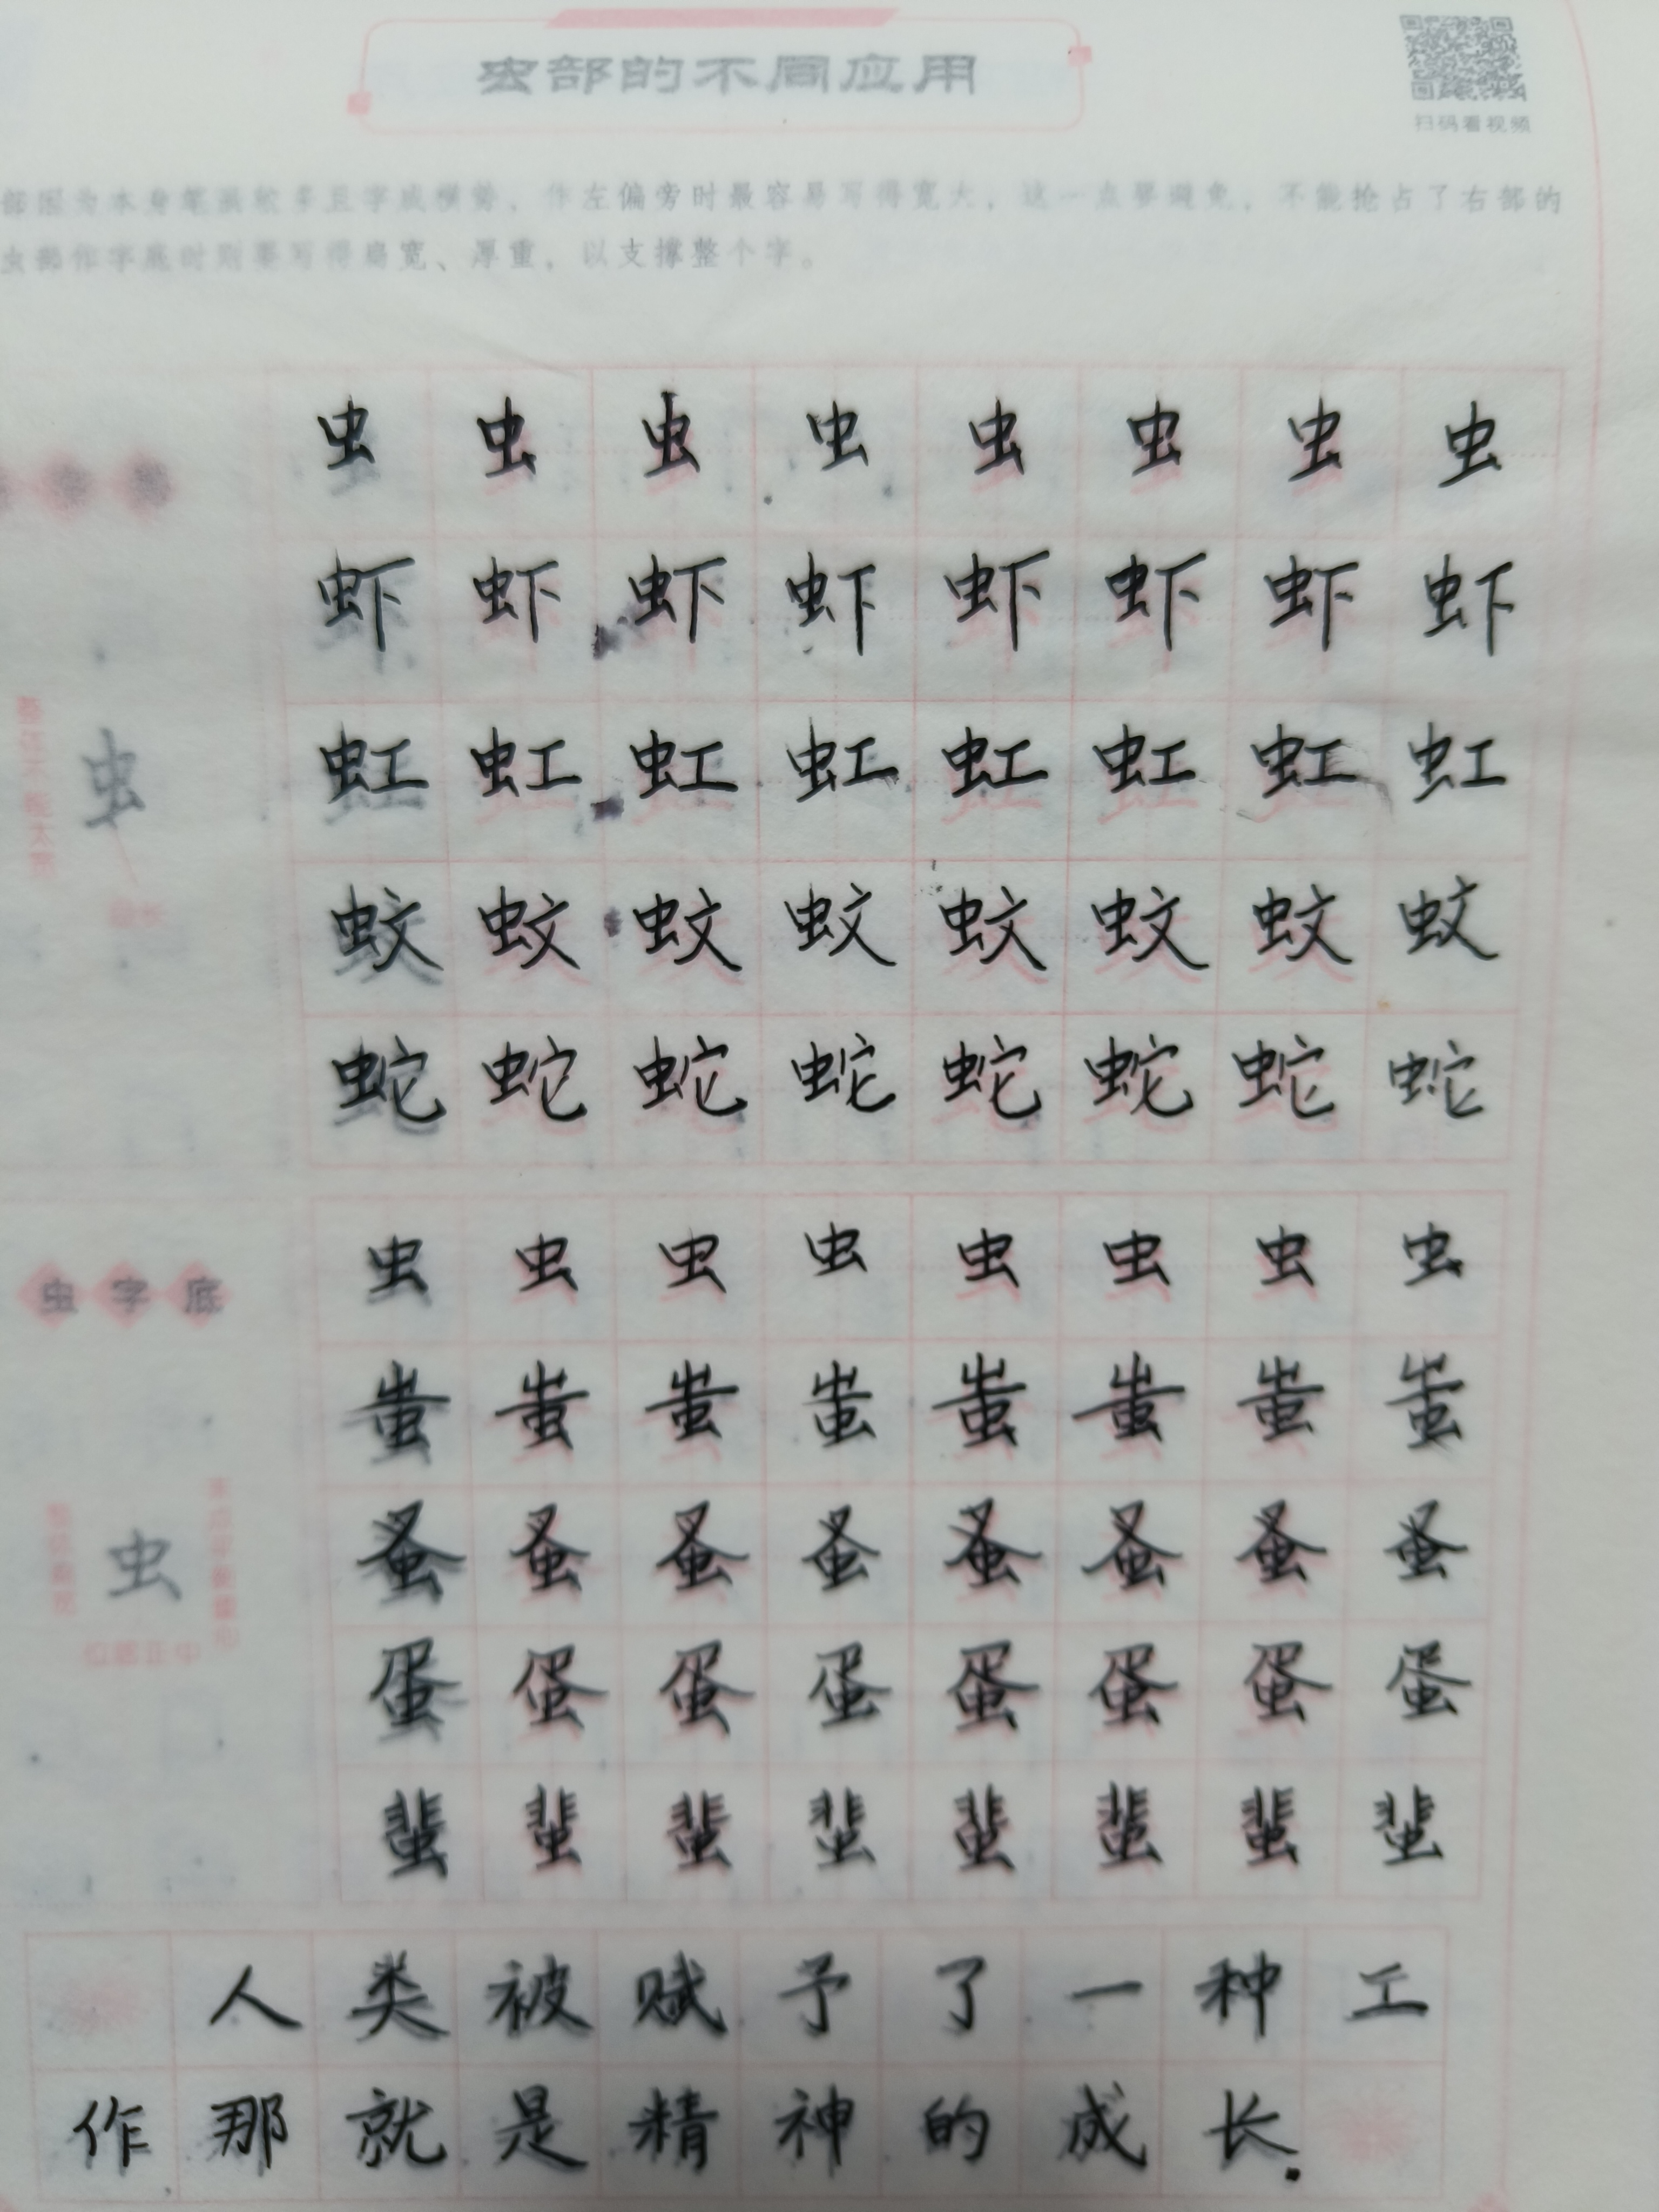 虫部的不同应用
扫码看视频
部因为本身笔画较多且字成横势，作左偏旁时最容易写得宽大，这一点要避免，不能抢占了右部的
虫部作字底时则要写得扁宽、厚重，以支撑整个字。
虫 虫 虫 虫 虫 虫 虫 虫
虾 虾 虾 虾 虾 虾 虾 虾
虹 虹 虹 虹 虹 虹 虹 虹
虫
蚊 蚊 蚊 蚊 蚊 蚊 蚊 蚊
蛇 蛇 蛇 蛇 蛇 蛇 蛇 蛇
虫字底
虫 虫 虫 虫 虫 虫 虫 虫
蚩 蚩 蚩 蚩 蚩 蚩 蚩 蚩
蚤 蚤 蚤 蚤 蚤 蚤 蚤 蚤
虫
位居正中
蛋 蛋 蛋 蛋 蛋 蛋 蛋 蛋
蜚 蜚 蜚 蜚 蜚 蜚 蜚 蜚
人类被赋予了一种工
作那就是精神的成长.